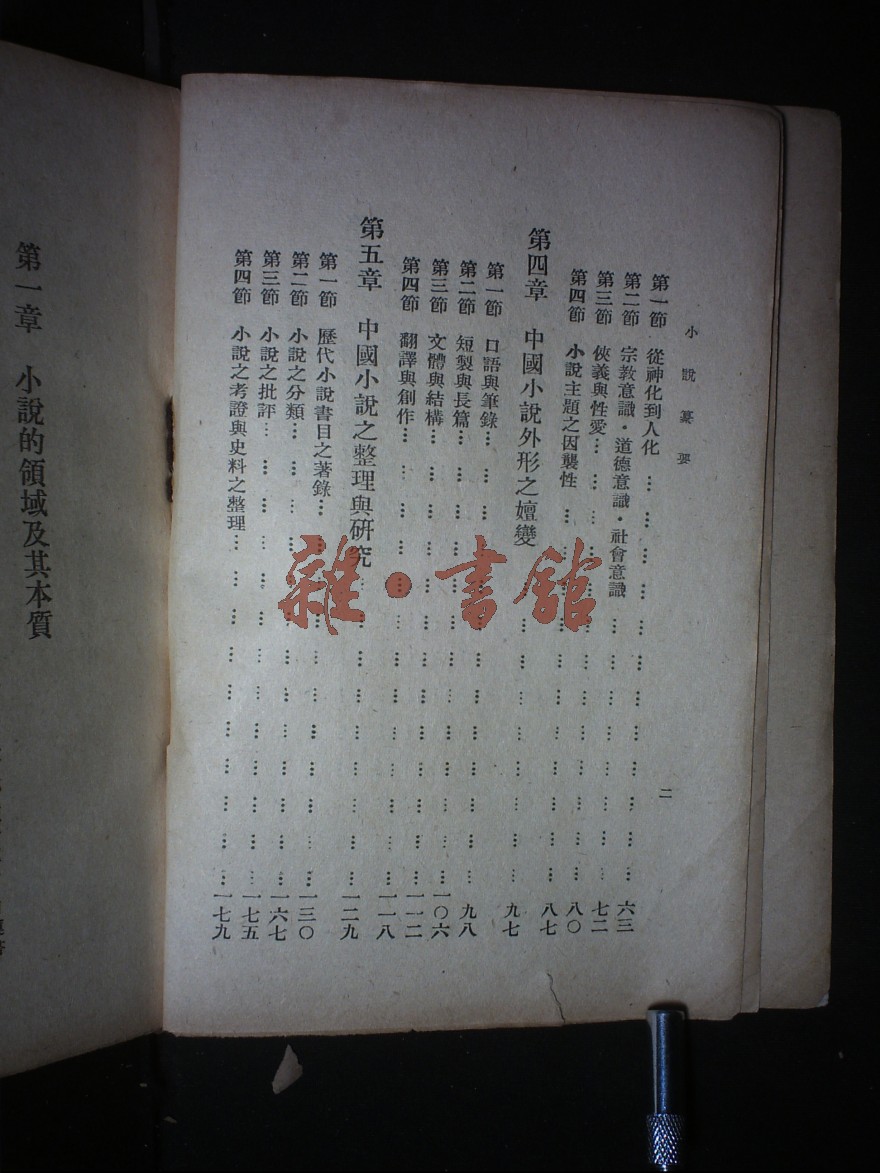 小說纂要
二
第一節 從神化到人化 … … … … … … … … … … … 六三
第二節 宗教意識·道德意識·社會意識 … … … … … … … 七二
第三節 俠義與性愛 … … … … … … … … … … … … 八〇
第四節 小說主題之因襲性 … … … … … … … … … … 八七
第四章 中國小說外形之嬗變 … … … … … … … … 九七
第一節 口語與筆錄 … … … … … … … … … … … … 九八
第二節 短製與長篇 … … … … … … … … … … … … 一〇六
第三節 文體與結構 … … … … … … … … … … … … 一一二
第四節 翻譯與創作 … … … … … … … … … … … … 一一八
第五章 中國小說之整理與研究 … … … … … … … … 一二九
第一節 歷代小說書目之著錄 … … … … … … … … … … 一三〇
第二節 小說之分類 … … … … … … … … … … … … 一六七
第三節 小說之批評 … … … … … … … … … … … … 一七五
第四節 小說之考證與史料之整理 … … … … … … … … … 一七九
第一章 小說的領域及其本質
雜·書館